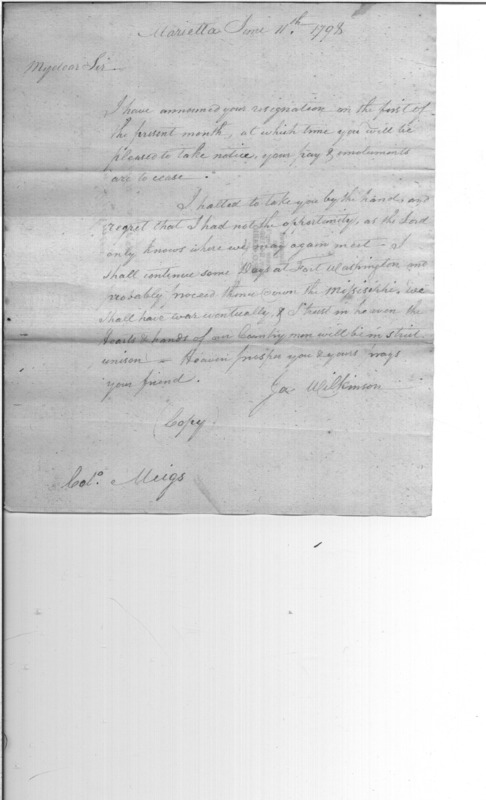 Marietta June 11th. 1798
My dear Sir
I have announced your resignation on the first of
the present month, at which time you will be
pleased to take notice, your pay & emoluments
are to cease.
I halted to take you by the hand, and
regret that I had not the oportunity, as the Lord
only knows where we may again meet - I
shall continue some Days at Fort Washington and
probably proceed thence down the Missisippi. We
shall have war eventually, & I trust in heaven the
Hearts & hands of our Country men will be in strict
unison - Heaven prosper you & yours prays
your friend.
Ja Wilkinson
Copy
Colo. Meigs